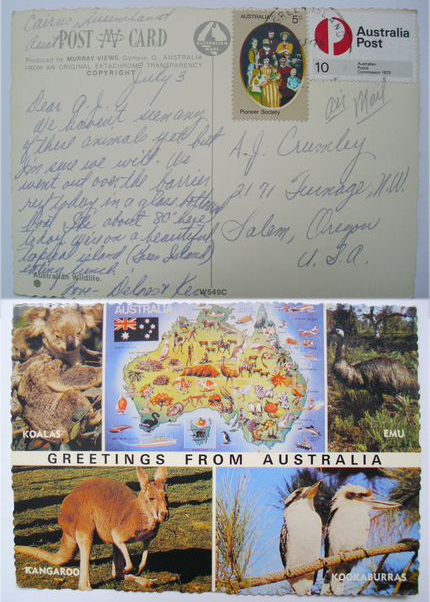 Cairns Queensland
POST CARD
Produced by MURRAY VIEWS, Gympie Q., AUSTRALIA
FROM AN ORIGINAL EKTACHROME TRANSPARENCY
COPYRIGHT
July 3
AUSTRALIA 5c
Pioneer Society
Australia
Post
10
Australian
Postal
Commission 1975
air Mail
Dear A.J.
We haven't seen any
of these animals yet but
I'm sure we will. We
went out over the barrier
reef today in a glass bottom
boat. It's about 80° here
today. We're on a beautiful
island (Green Island)
eating lunch
Love - Delnor & Ken
Australian Wildlife.
W549C
A.J. Crumley
2171 Turnage, N.W.
Salem, Oregon
U.S.A.
AUSTRALIA
KOALAS
EMU
GREETINGS FROM AUSTRALIA
KANGAROO
KOOKABURRAS